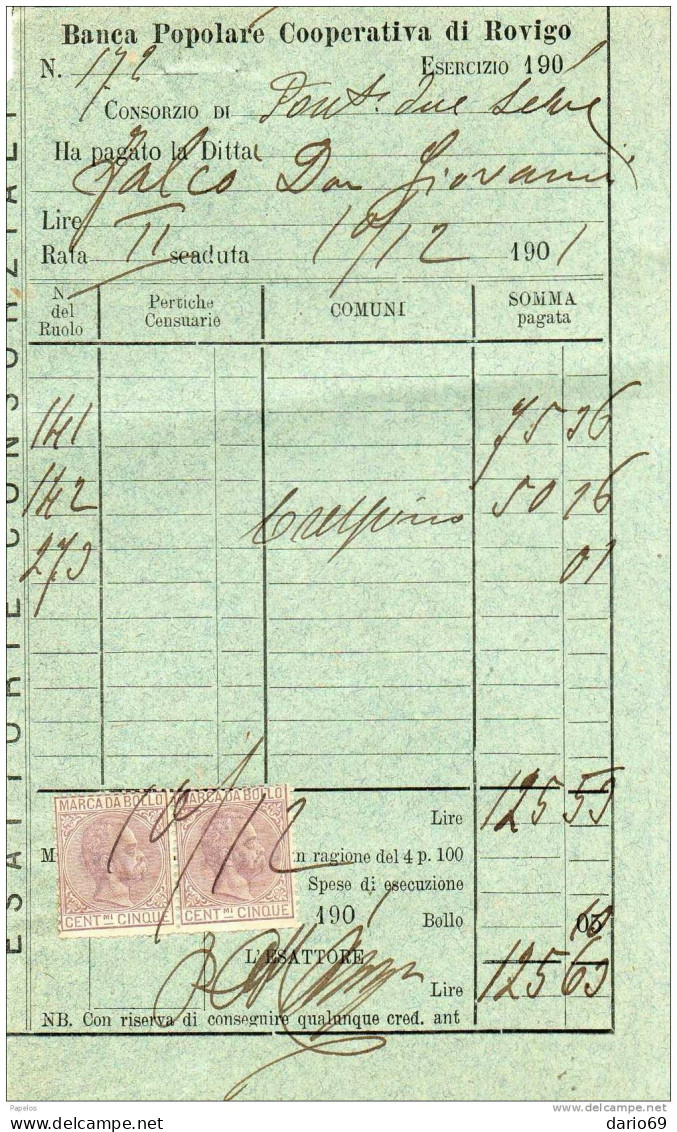 Banca Popolare Cooperativa di Rovigo
N. 172 Esercizio 1901
Consorzio di Pont. due Selve
Ha pagato la Ditta
Falco Don Giovanni
Lire
Rata II scaduta 10/12 1901
N. del Ruolo Pertiche Censuarie COMUNI SOMMA pagata
141 75 36
142 Crespino 50 16
273 01
Lire 125 53
MARCA DA BOLLO MARCA DA BOLLO
10/12
M in ragione del 4 p. 100
CENT.MI CINQUE CENT.MI CINQUE
Spese di esecuzione
1901 Bollo 05 10
L'ESATTORE
Lire 125 63
NB. Con riserva di conseguire qualunque cred. ant
ESATTORIE CONSORZIALI
Papelos
www.delcampe.net
dario69